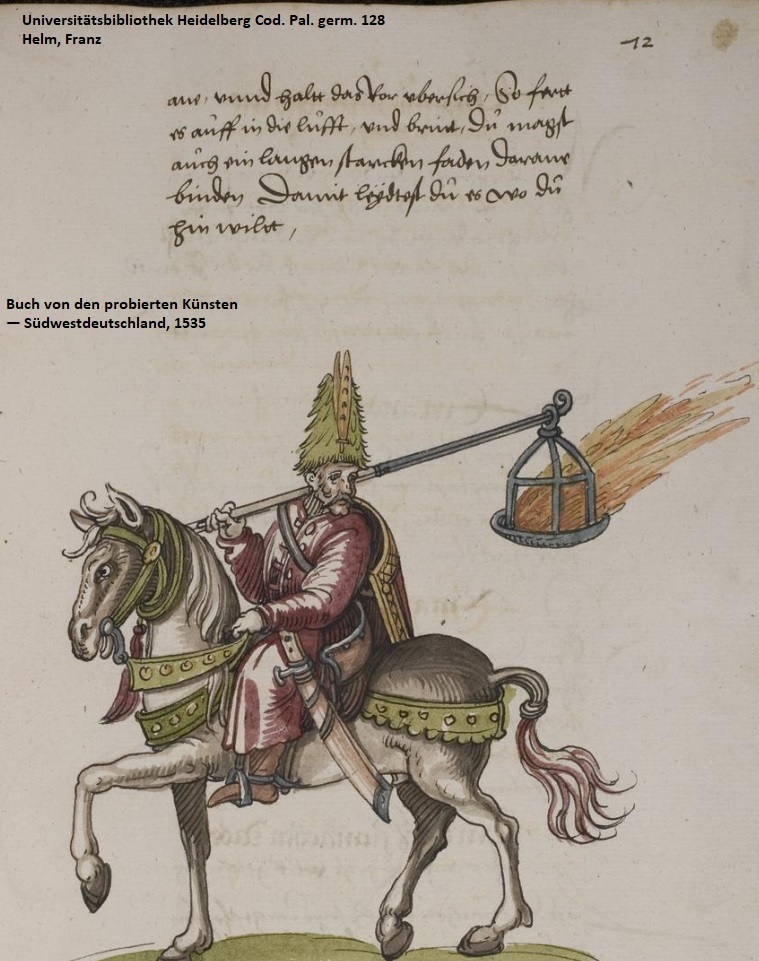 Universitätsbibliothek Heidelberg Cod. Pal. germ. 128
Helm, Franz
12
ane, vnnd haltt das Ror vbersich, So fertt
es auff in die lufft, vnd brint, Du magst
auch ein langen starcken faden darane
binden Damit leydtest du es wo du
hin wiltt,
Buch von den probierten Künsten
— Südwestdeutschland, 1535